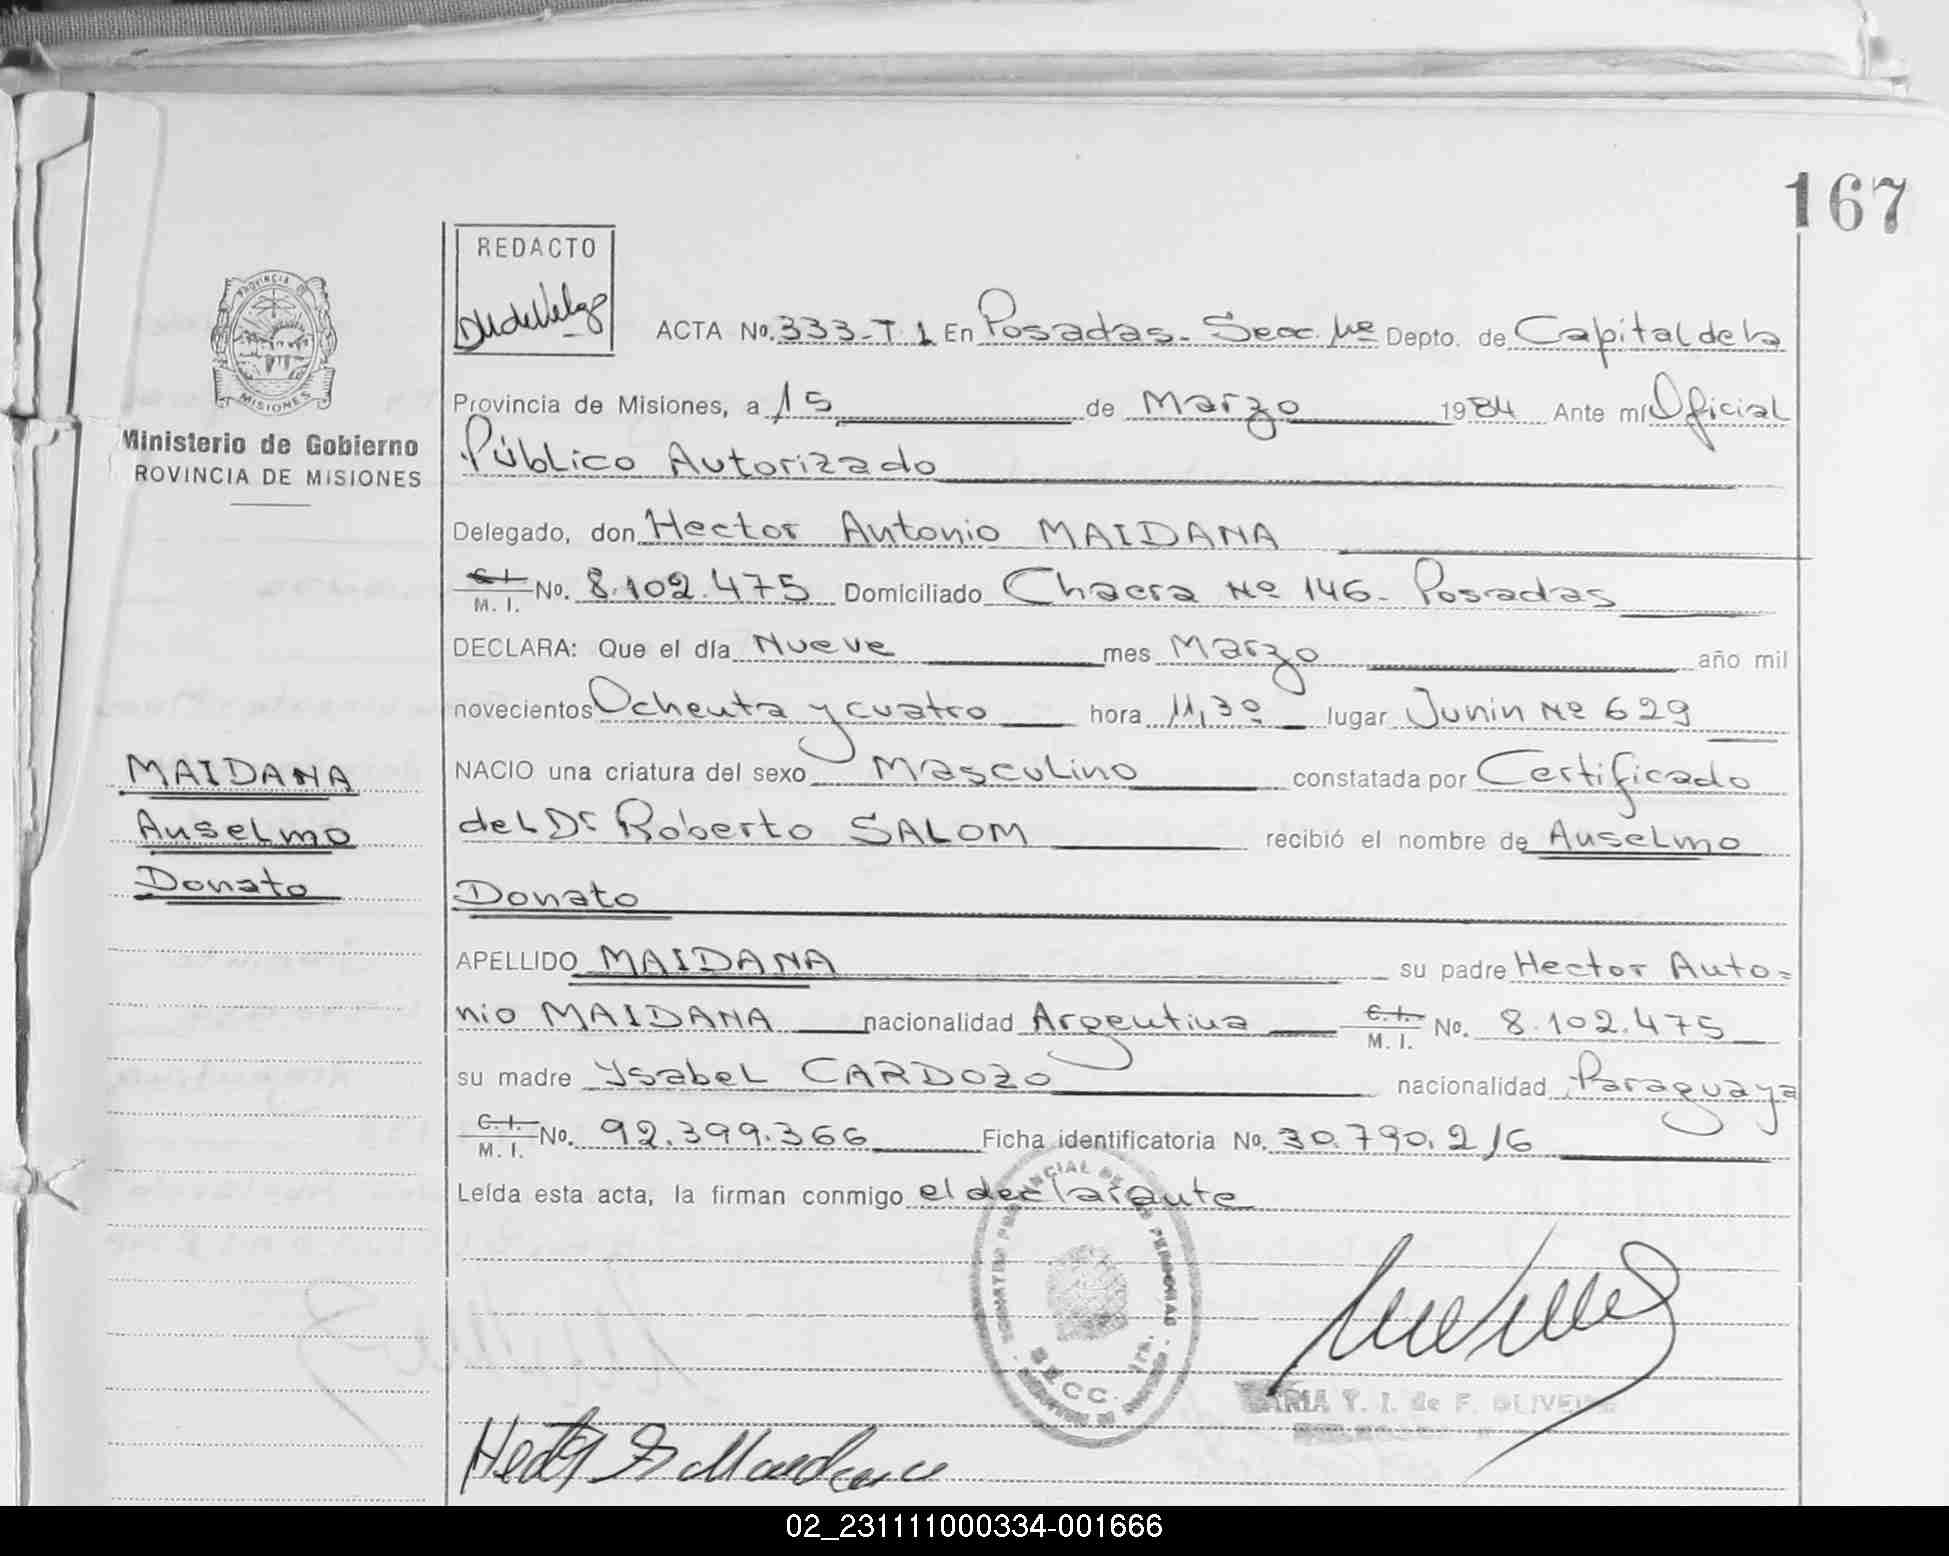 167
REDACTO
PROVINCIA DE
MISIONES
Ministerio de Gobierno
ROVINCIA DE MISIONES
ACTA No. 333-T 1 En Posadas. Secc. 1ra Depto. de Capital de la
Provincia de Misiones, a 15 de Marzo 1984 Ante mí Oficial
Público Autorizado
Delegado, don Hector Antonio MAIDANA
C. I. / M. I. No. 8.102.475 Domiciliado Chacra Nº 146. Posadas
DECLARA: Que el día Nueve mes Marzo año mil
novecientos Ochenta y cuatro hora 11,30 lugar Junin Nº 629
NACIO una criatura del sexo Masculino constatada por Certificado
del Dr Roberto SALOM recibió el nombre de Anselmo
Donato
APELLIDO MAIDANA su padre Hector Anto=
nio MAIDANA nacionalidad Argentina C. I. / M. I. No. 8.102.475
su madre Ysabel CARDOZO nacionalidad Paraguaya
C. I. / M. I. No. 92.399.366 Ficha identificatoria No. 30.790.216
Leída esta acta, la firman conmigo el declarante
MAIDANA
Anselmo
Donato
SECC. 1ra.
MARIA Y. I. de F. OLIVEIRA
02_231111000334-001666